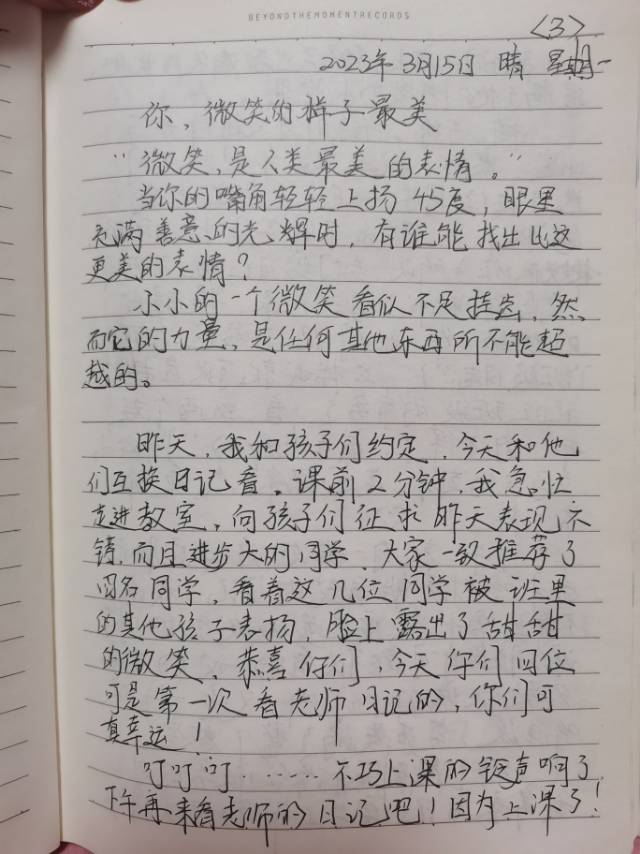 BEYONDTHEMOMENTRECORDS
<3>
2023年3月15日 晴 星期一
你，微笑的样子最美
“微笑，是人类最美的表情。”
当你的嘴角轻轻上扬45度，眼里
充满善意的光辉时，有谁能找出比这
更美的表情？
小小的一个微笑看似不足挂齿，然
而它的力量，是任何其他东西所不能超
越的。
昨天，我和孩子们约定，今天和他
们互换日记看。课前2分钟，我急忙
走进教室，向孩子们征求昨天表现不
错，而且进步大的同学，大家一致推荐了
四名同学，看着这几位同学被班里
的其他孩子表扬，脸上露出了甜甜
的微笑，恭喜你们，今天你们四位
可是第一次看老师日记的，你们可
真幸运！
叮叮叮……不巧上课的铃声响了
下午再来看老师的日记吧！因为上课了！